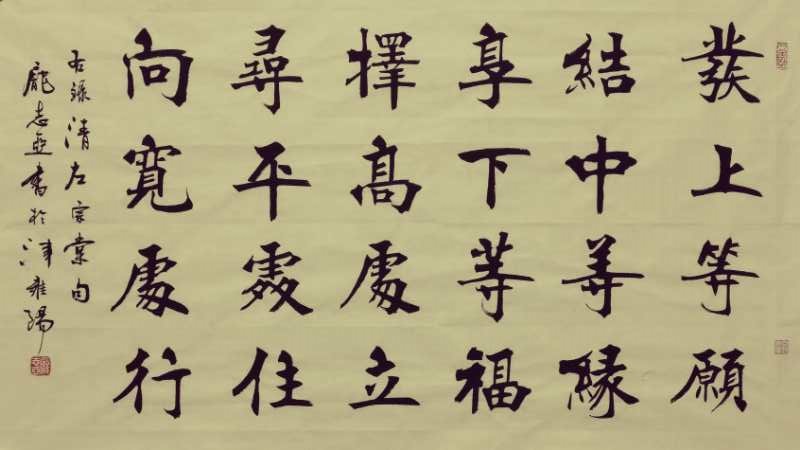 發上等願
結中等緣
享下等福
擇高處立
尋平處住
向寬處行
右錄清左宗棠句
龐志亞書於津雍陽